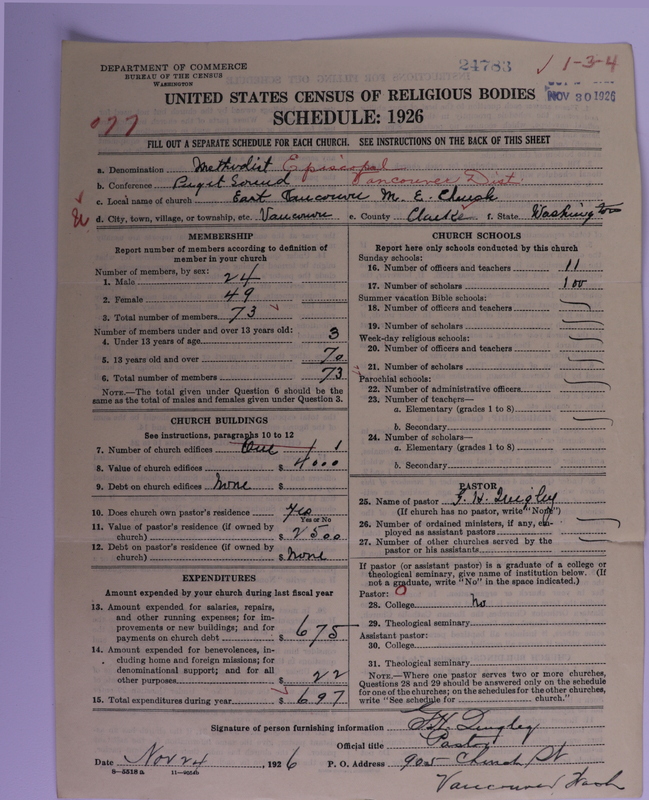 DEPARTMENT OF COMMERCE
BUREAU OF THE CENSUS
WASHINGTON
24783
✓ 1-3-4
NOV 30 1926
077
UNITED STATES CENSUS OF RELIGIOUS BODIES
SCHEDULE: 1926
FILL OUT A SEPARATE SCHEDULE FOR EACH CHURCH. SEE INSTRUCTIONS ON THE BACK OF THIS SHEET
a. Denomination Methodist Episcopal
b. Conference Puget Sound Vancouver Dist.
c. Local name of church East Vancouver M. E. Church
d. City, town, village, or township, etc. Vancouver e. County Clarke f. State Washington
MEMBERSHIP
Report number of members according to definition of
member in your church
Number of members, by sex:
1. Male 24
2. Female 49
3. Total number of members 73
Number of members under and over 13 years old:
4. Under 13 years of age 3
5. 13 years old and over 70
6. Total number of members 73
NOTE.—The total given under Question 6 should be the
same as the total of males and females given under Question 3.
CHURCH BUILDINGS
See instructions, paragraphs 10 to 12
7. Number of church edifices One 1
8. Value of church edifices $ 4000
9. Debt on church edifices None $
10. Does church own pastor's residence Yes
Yes or No
11. Value of pastor's residence (if owned by
church) $ 2500
12. Debt on pastor's residence (if owned by
church) $ None
EXPENDITURES
Amount expended by your church during last fiscal year
13. Amount expended for salaries, repairs,
and other running expenses; for im-
provements or new buildings; and for
payments on church debt $ 675
14. Amount expended for benevolences, in-
cluding home and foreign missions; for
denominational support; and for all
other purposes $ 22
15. Total expenditures during year $ 697
CHURCH SCHOOLS
Report here only schools conducted by this church
Sunday schools:
16. Number of officers and teachers 11
17. Number of scholars 100
Summer vacation Bible schools:
18. Number of officers and teachers
19. Number of scholars
Week-day religious schools:
20. Number of officers and teachers
21. Number of scholars
Parochial schools:
22. Number of administrative officers
23. Number of teachers—
a. Elementary (grades 1 to 8)
b. Secondary
24. Number of scholars—
a. Elementary (grades 1 to 8)
b. Secondary
PASTOR
25. Name of pastor F. H. Quigley
(If church has no pastor, write "None")
26. Number of ordained ministers, if any, em-
ployed as assistant pastors
27. Number of other churches served by the
pastor or his assistants
If pastor (or assistant pastor) is a graduate of a college or
theological seminary, give name of institution below. (If
not a graduate, write "No" in the space indicated.)
Pastor:
28. College No
29. Theological seminary
Assistant pastor:
30. College
31. Theological seminary
NOTE.—Where one pastor serves two or more churches,
Questions 28 and 29 should be answered only on the schedule
for one of the churches; on the schedules for the other churches,
write "See schedule for church."
Signature of person furnishing information F. H. Quigley
Official title Pastor
Date Nov 24, 1926 P. O. Address 905 Church St
Vancouver Wash
8—5518a 11—9054b